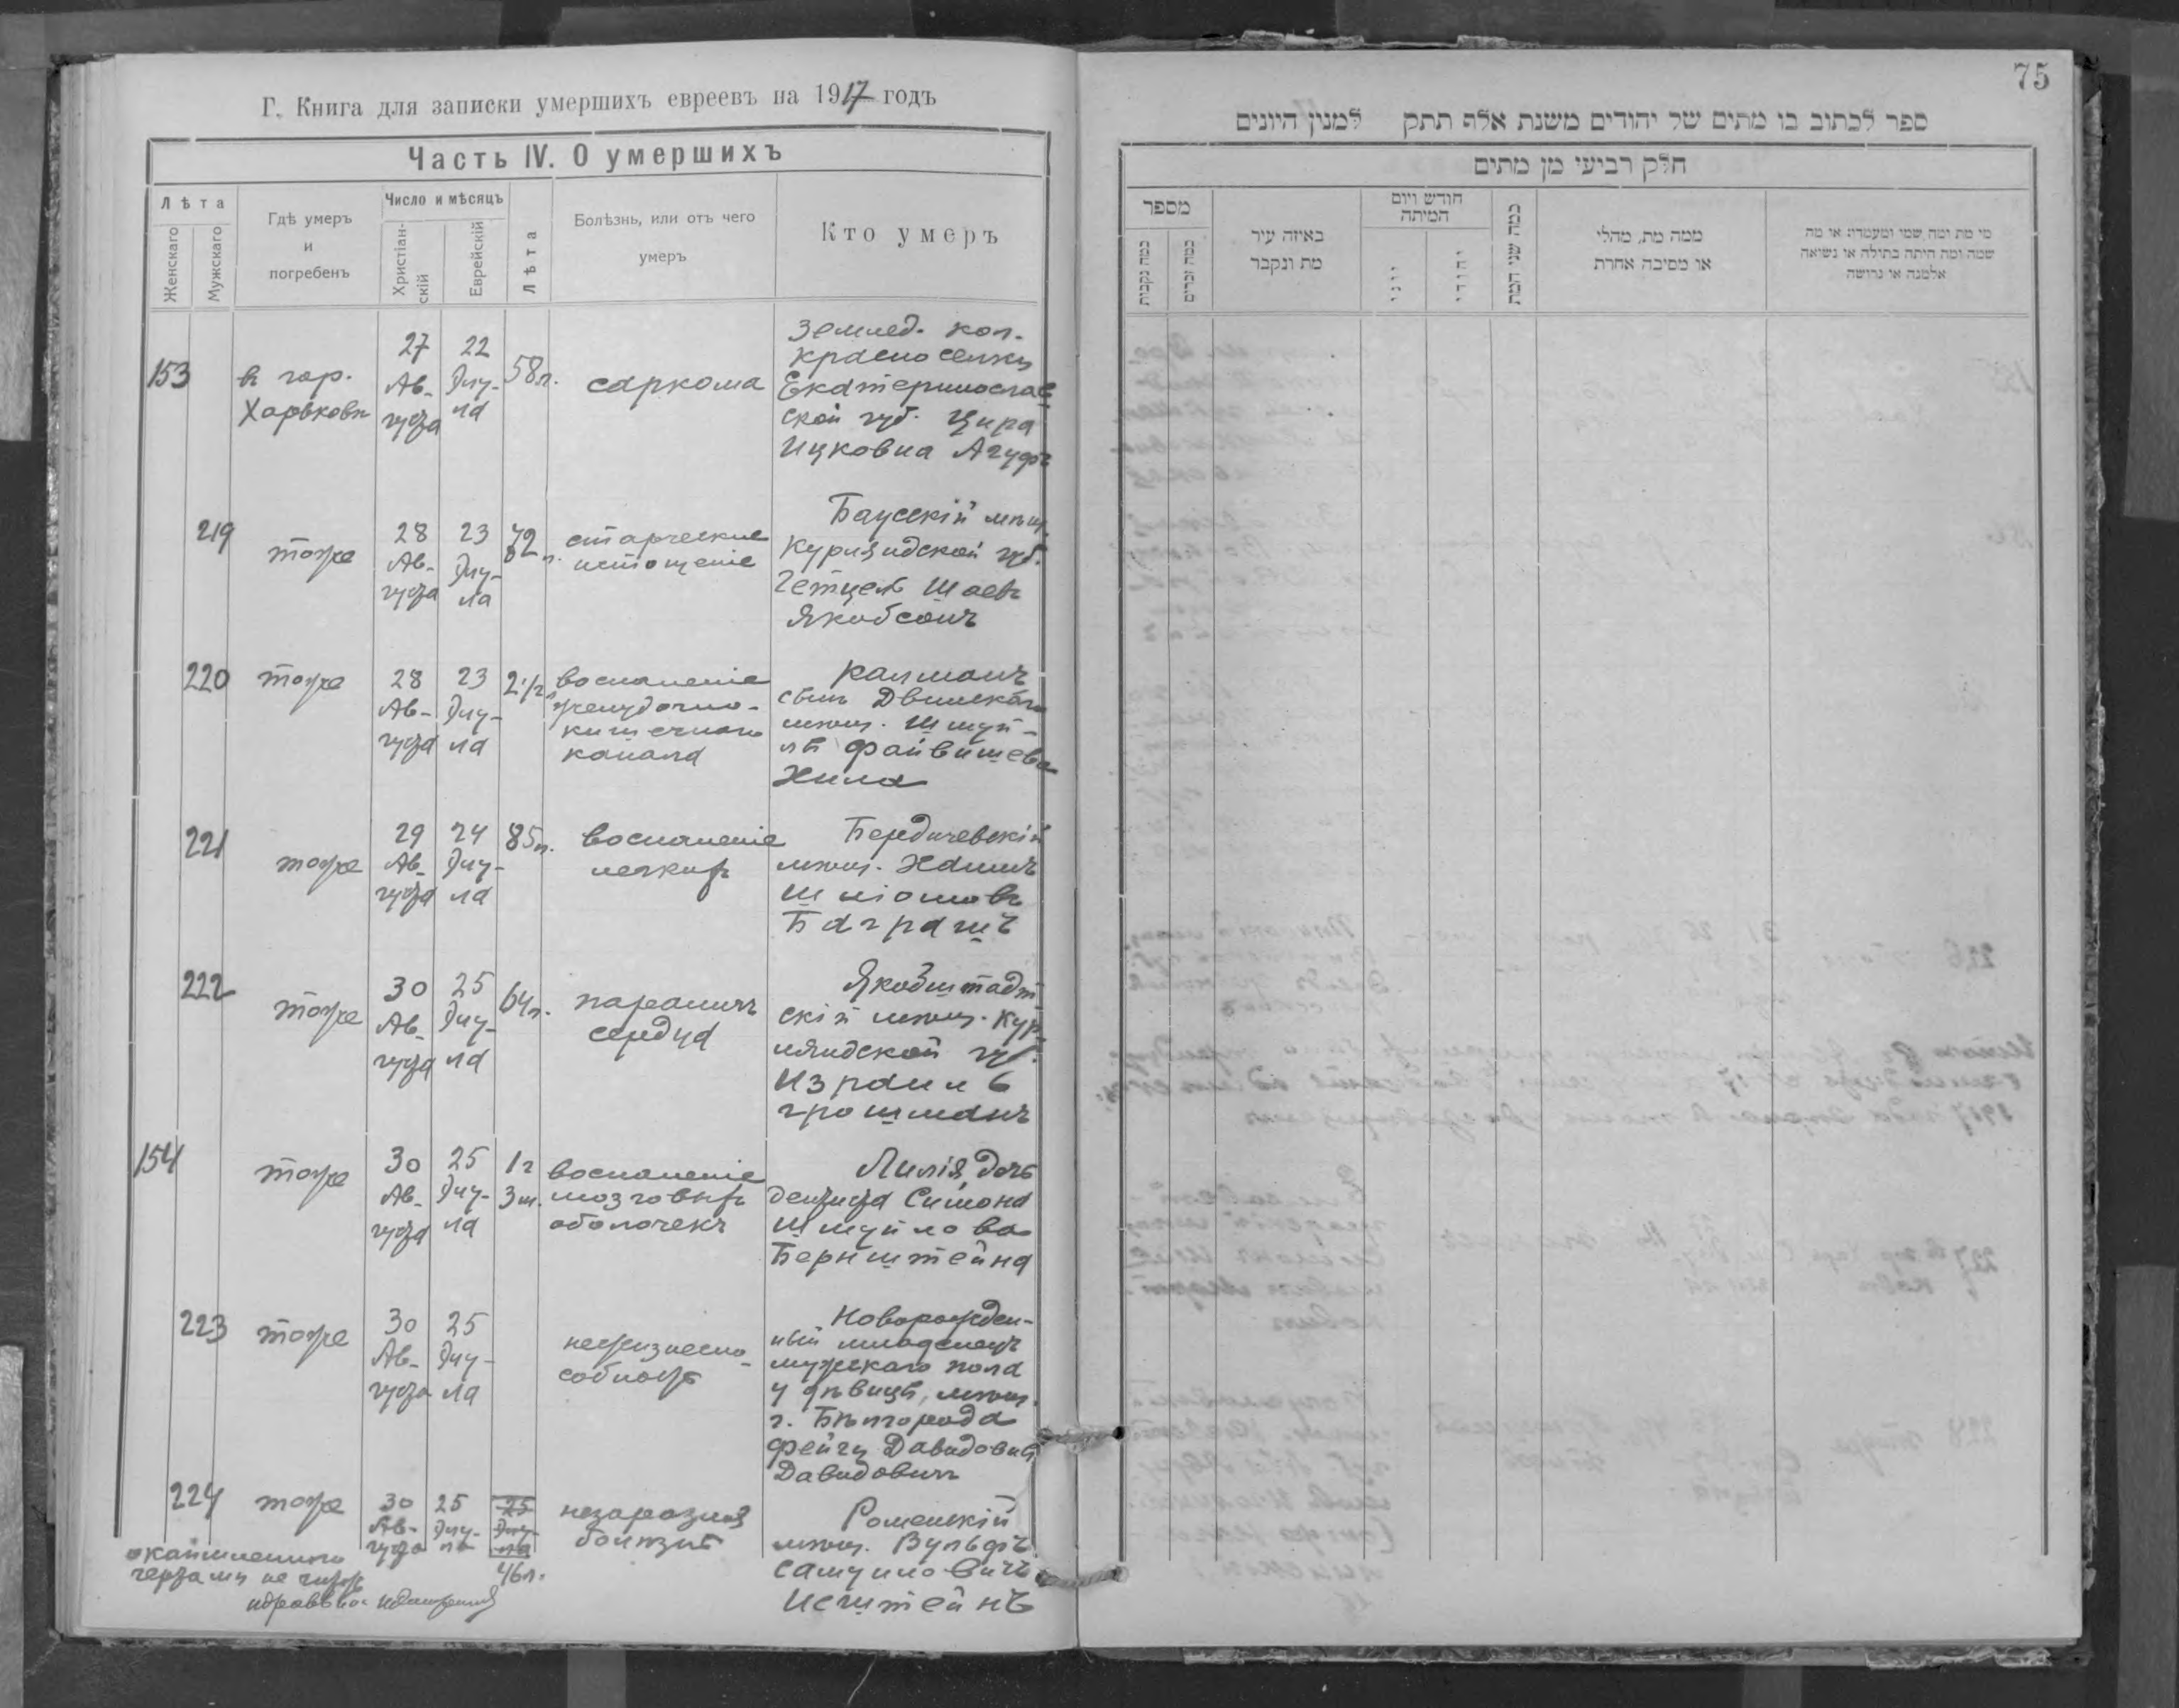 Г. Книга для записки умершихъ евреевъ на 1917 годъ
Часть IV. О умершихъ
Лѣта
Женскаго
Мужскаго
Гдѣ умеръ
и
погребенъ
Число и мѣсяцъ
Христіан-
скій
Еврейскій
Лѣта
Болѣзнь, или отъ чего
умеръ
Кто умеръ
153
в гор.
Харьковѣ
27
Ав-
густа
22
Элу-
ла
58 л.
саркома
Землед. кол.
Красноселки
Екатеринослав
ской губ. Цира
Ицковна Агуфъ
219
тоже
28
Ав-
густа
23
Элу-
ла
72
л.
старческие
истощение
Баусскій мѣщ.
Курляндской губ.
Гетцель Шаевъ
Якобсонъ
220
тоже
28
Ав-
густа
23
Элу-
ла
2 1/2
воспаление
желудочно-
кишечнаго
канала
Калманъ
сынъ Двинскаго
мѣщ. Шмуй-
лы Файвишева
Хила
221
тоже
29
Ав-
густа
24
Элу-
ла
85 л.
воспаление
легкихъ
Бердичевскій
мѣщ. Хаимъ
Шліомовъ
Баграшъ
222
тоже
30
Ав-
густа
25
Элу-
ла
64 л.
параличъ
сердца
Якобштадт
скій мѣщ. Кур
ляндской губ.
Израиль
Грошманъ
154
тоже
30
Ав-
густа
25
Элу-
ла
1 г
3 м.
воспаление
мозговыхъ
оболочекъ
Лилія дочь
дентиста Симона
Шмуйлова
Бернштейна
223
тоже
30
Ав-
густа
25
Элу-
ла
нежизнеспо-
собность
Новорожден-
ный младенецъ
мужескаго пола
у дѣвицы, мѣщ.
г. Бѣлгорода
Фейги Давидовны
Давидовичъ
224
тоже
30
Ав-
густа
25
Элу-
ла
25
Элу-
ла
46 л.
незаразная
болѣзнь
Роменскій
мѣщ. Вульфъ
Самуиловичъ
Исштейнъ
окаймленнаго
чертами не читать
75
ספר לכתוב בו מתים של יהודים משנת אלף תתק למנין היונים
חלק רביעי מן מתים
מספר
כמה נקבות
כמה זכרים
באיזה עיר
מת ונקבר
חודש ויום
המיתה
יוני
יהודי
כמה שני המת
ממה מת, מחלי
או מסיבה אחרת
מי מת ומה שמו ומעמדו או מה
שמה ומה היתה בתולה או נשואה
אלמנה או גרושה